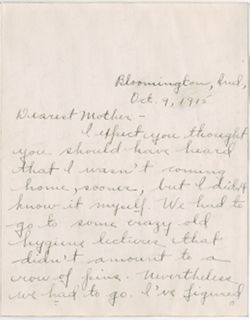 Bloomington, Ind,
Oct. 9, 1915
Dearest Mother -
I expect you thought
you should have heard
that I wasn't coming
home, sooner, but I didn't
know it myself. We had to
go to some crazy old
hygiene lectures that
didn't amount to a
of pins. Nevertheless
we had to go. I've figured